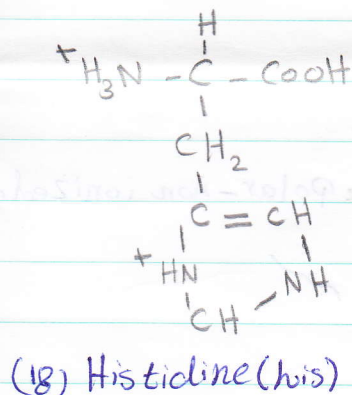 H
+H₃N - C - COOH
CH₂
C = CH
+HN NH
CH
(18) Histidine (his)